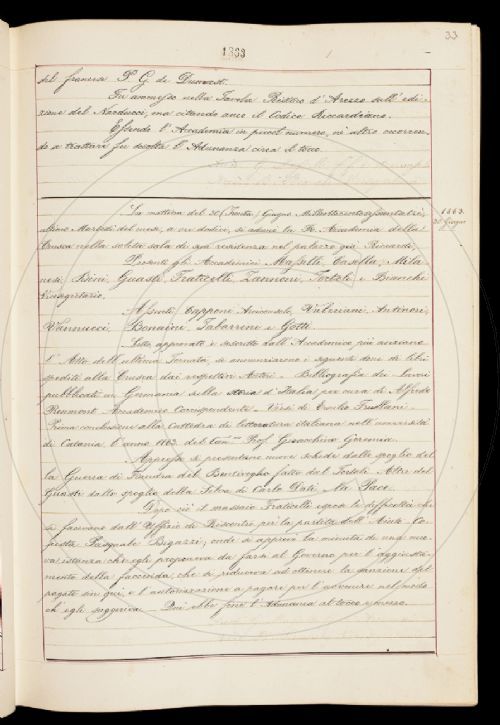 33
1863
del francese P. G. de Dumast.
Fu ammesso nella Tavola Ristoro d'Arezzo sull'edi-
zione del Narducci, ma citando anco il Codice Riccardiano.
Essendo l'Accademia in piccol numero, nè altro occorren-
do a trattare fu sciolta l'Adunanza circa il tocco.
1863.
30 Giugno
La mattina del 30 (Trenta) Giugno Milleottocentosessantatré,
ultimo Martedì del mese, a ore dodici, si adunò la R. Accademia della
Crusca nella solita sala di sua residenza nel palazzo già Riccardi,
Presenti gli Accademici Masselli, Casella, Mila-
nesi, Bini, Guasti, Fraticelli, Zannoni, Tortoli, e Bianchi
Vicesegretario.
Assenti Capponi Arciconsolo, Valeriani, Antinori,
Vannucci, Bonaini, Tabarrini e Gotti.
Letto approvato e sottoscritto dall'Accademico più anziano
l'Atto dell'ultima Tornata, si annunziarono i seguenti doni di libri
spediti alla Crusca dai rispettivi Autori. Bibliografia dei lavori
pubblicati in Germania sulla storia d'Italia per cura di Alfredo
Reumont Accademico Corrispondente. Versi di Emilio Frullani.
Prima conclusione alla Cattedra di letteratura italiana nell'università
di Catania l'anno 1862 del Prof. Gioacchino Geremia.
Appresso si presentano nuove schede dello spoglio del
la Guerra di Fiandra del Bentivoglio fatto dal Tortoli. Altre del
Guasti sullo spoglio della Selva di Carlo Dati. Ma Pace.
Dopo ciò il massaio Fraticelli espose le difficoltà che
si facevano dall'Uffizio di Riscontro per la partita dell'Aiuto Co-
pista Pasquale Bigazzi; onde si approvò la minuta di una nuo-
va istanza che egli proponeva da farsi al Governo per l'aggiusta-
mento della faccenda, che si riduceva ad ottenere la sanzione del
pagato sin qui, e l'autorizzazione a pagare per l'avvenire nel modo
ch'egli suggeriva. Qui ebbe fine l'Adunanza al tocco e mezzo.